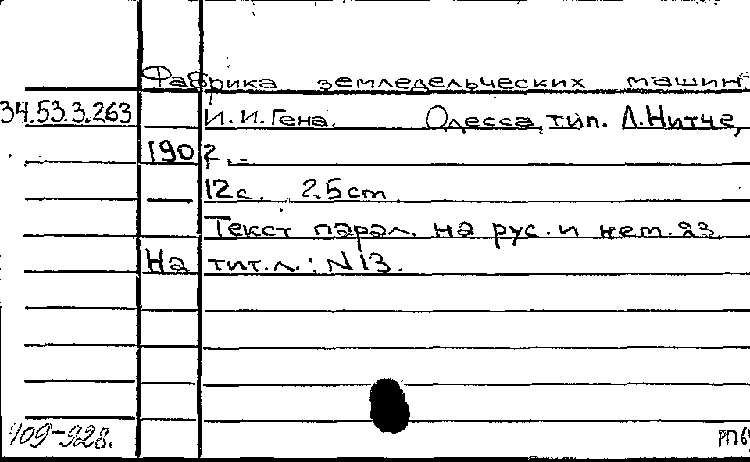 Фабрика земледельческих машин
34.53.3.263 И.И.Гена. Одесса, тип. Л.Нитче,
1902.-
12с. 25cm.
Текст парал. на рус. и нем. яз.
На тит.л.: N 13.
409-928. РП6